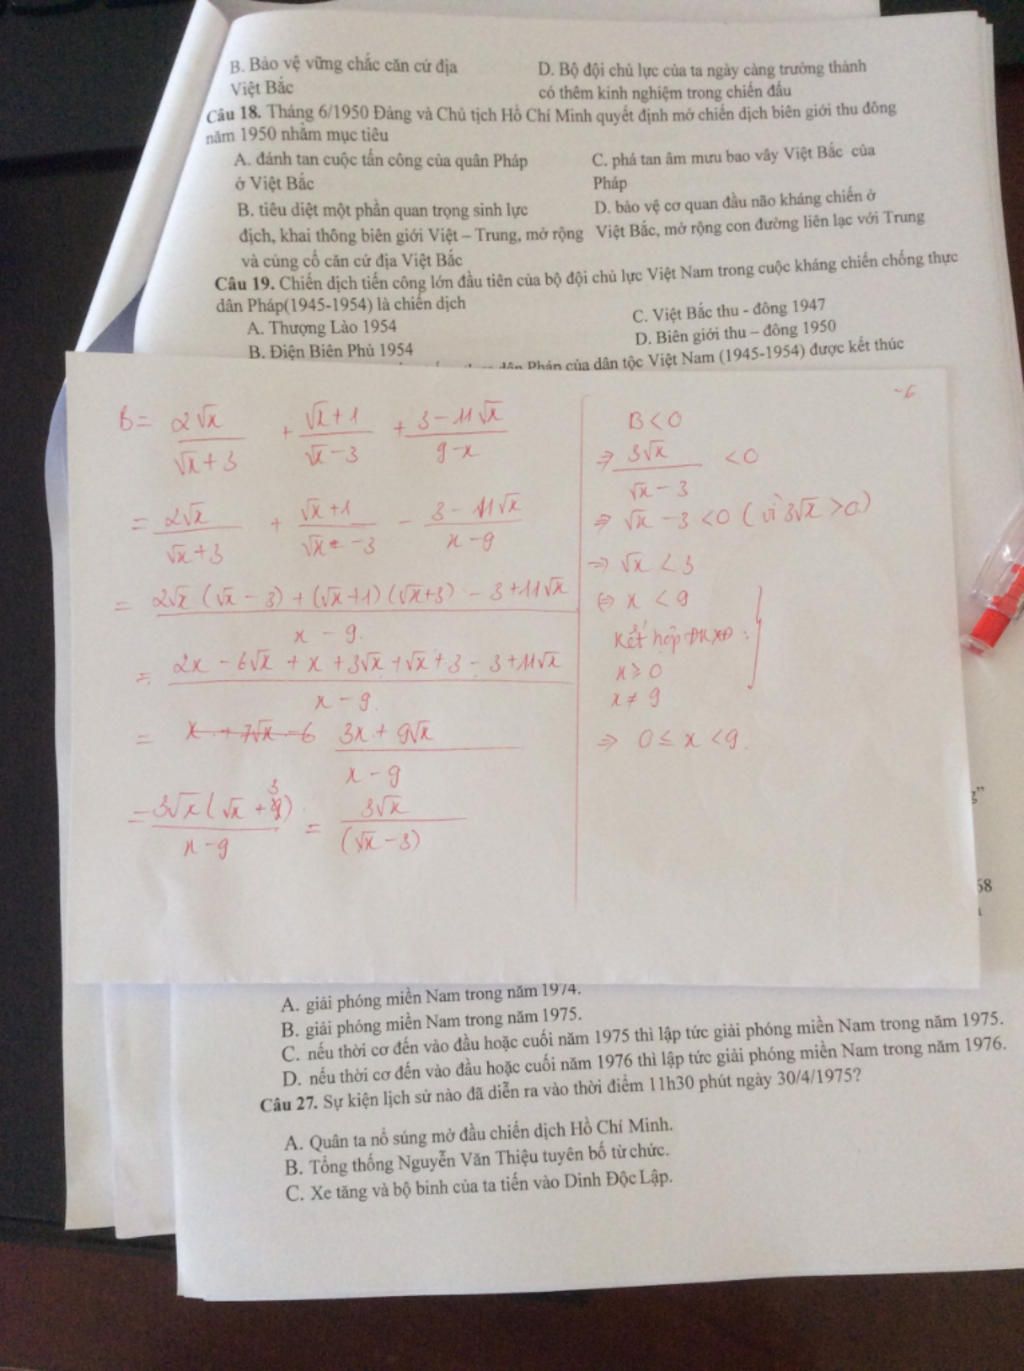 B. Bảo vệ vững chắc căn cứ địa
Việt Bắc
D. Bộ đội chủ lực của ta ngày càng trưởng thành
có thêm kinh nghiệm trong chiến đấu
Câu 18. Tháng 6/1950 Đảng và Chủ tịch Hồ Chí Minh quyết định mở chiến dịch biên giới thu đông
năm 1950 nhằm mục tiêu
A. đánh tan cuộc tấn công của quân Pháp
ở Việt Bắc
C. phá tan âm mưu bao vây Việt Bắc của
Pháp
B. tiêu diệt một phần quan trọng sinh lực
địch, khai thông biên giới Việt – Trung, mở rộng
và củng cố căn cứ địa Việt Bắc
D. bảo vệ cơ quan đầu não kháng chiến ở
Việt Bắc, mở rộng con đường liên lạc với Trung
Câu 19. Chiến dịch tiến công lớn đầu tiên của bộ đội chủ lực Việt Nam trong cuộc kháng chiến chống thực
dân Pháp(1945-1954) là chiến dịch
A. Thượng Lào 1954
B. Điện Biên Phủ 1954
C. Việt Bắc thu - đông 1947
D. Biên giới thu – đông 1950
dân Pháp của dân tộc Việt Nam (1945-1954) được kết thúc
-6
B = 2√x/(√x+3) + (√x+1)/(√x-3) + (3-11√x)/(9-x)
= 2√x/(√x+3) + (√x+1)/(√x-3) - (3-11√x)/(x-9)
= (2√x(√x-3) + (√x+1)(√x+3) - 3+11√x)/(x-9)
= (2x-6√x + x + 3√x + √x + 3 - 3+11√x)/(x-9)
= (3x + 9√x)/(x-9)
= 3√x(√x+3)/(x-9) = 3√x/(√x-3)
B < 0
⇒ 3√x/(√x-3) < 0
⇒ √x - 3 < 0 (vì 3√x > 0)
⇒ √x < 3
⇔ x < 9
Kết hợp ĐKXĐ:
x ≥ 0
x ≠ 9
⇒ 0 ≤ x < 9.
”
58
A. giải phóng miền Nam trong năm 1974.
B. giải phóng miền Nam trong năm 1975.
C. nếu thời cơ đến vào đầu hoặc cuối năm 1975 thì lập tức giải phóng miền Nam trong năm 1975.
D. nếu thời cơ đến vào đầu hoặc cuối năm 1976 thì lập tức giải phóng miền Nam trong năm 1976.
Câu 27. Sự kiện lịch sử nào đã diễn ra vào thời điểm 11h30 phút ngày 30/4/1975?
A. Quân ta nổ súng mở đầu chiến dịch Hồ Chí Minh.
B. Tổng thống Nguyễn Văn Thiệu tuyên bố từ chức.
C. Xe tăng và bộ binh của ta tiến vào Dinh Độc Lập.